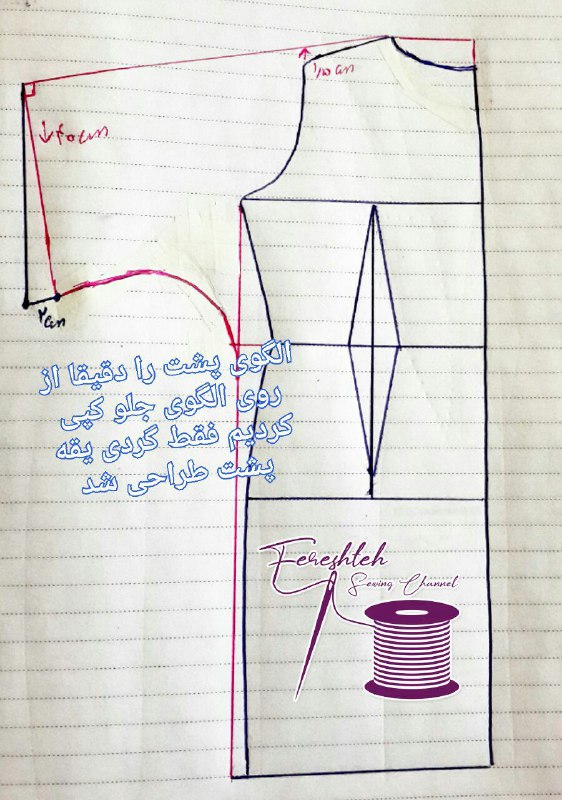 ۱/۵ cm
↓ ۴۰ cm
۲ cm
الگوی پشت را دقیقا از
روی الگوی جلو کپی
کردیم فقط گردی یقه
پشت طراحی شد
Fereshteh
Sewing Channel